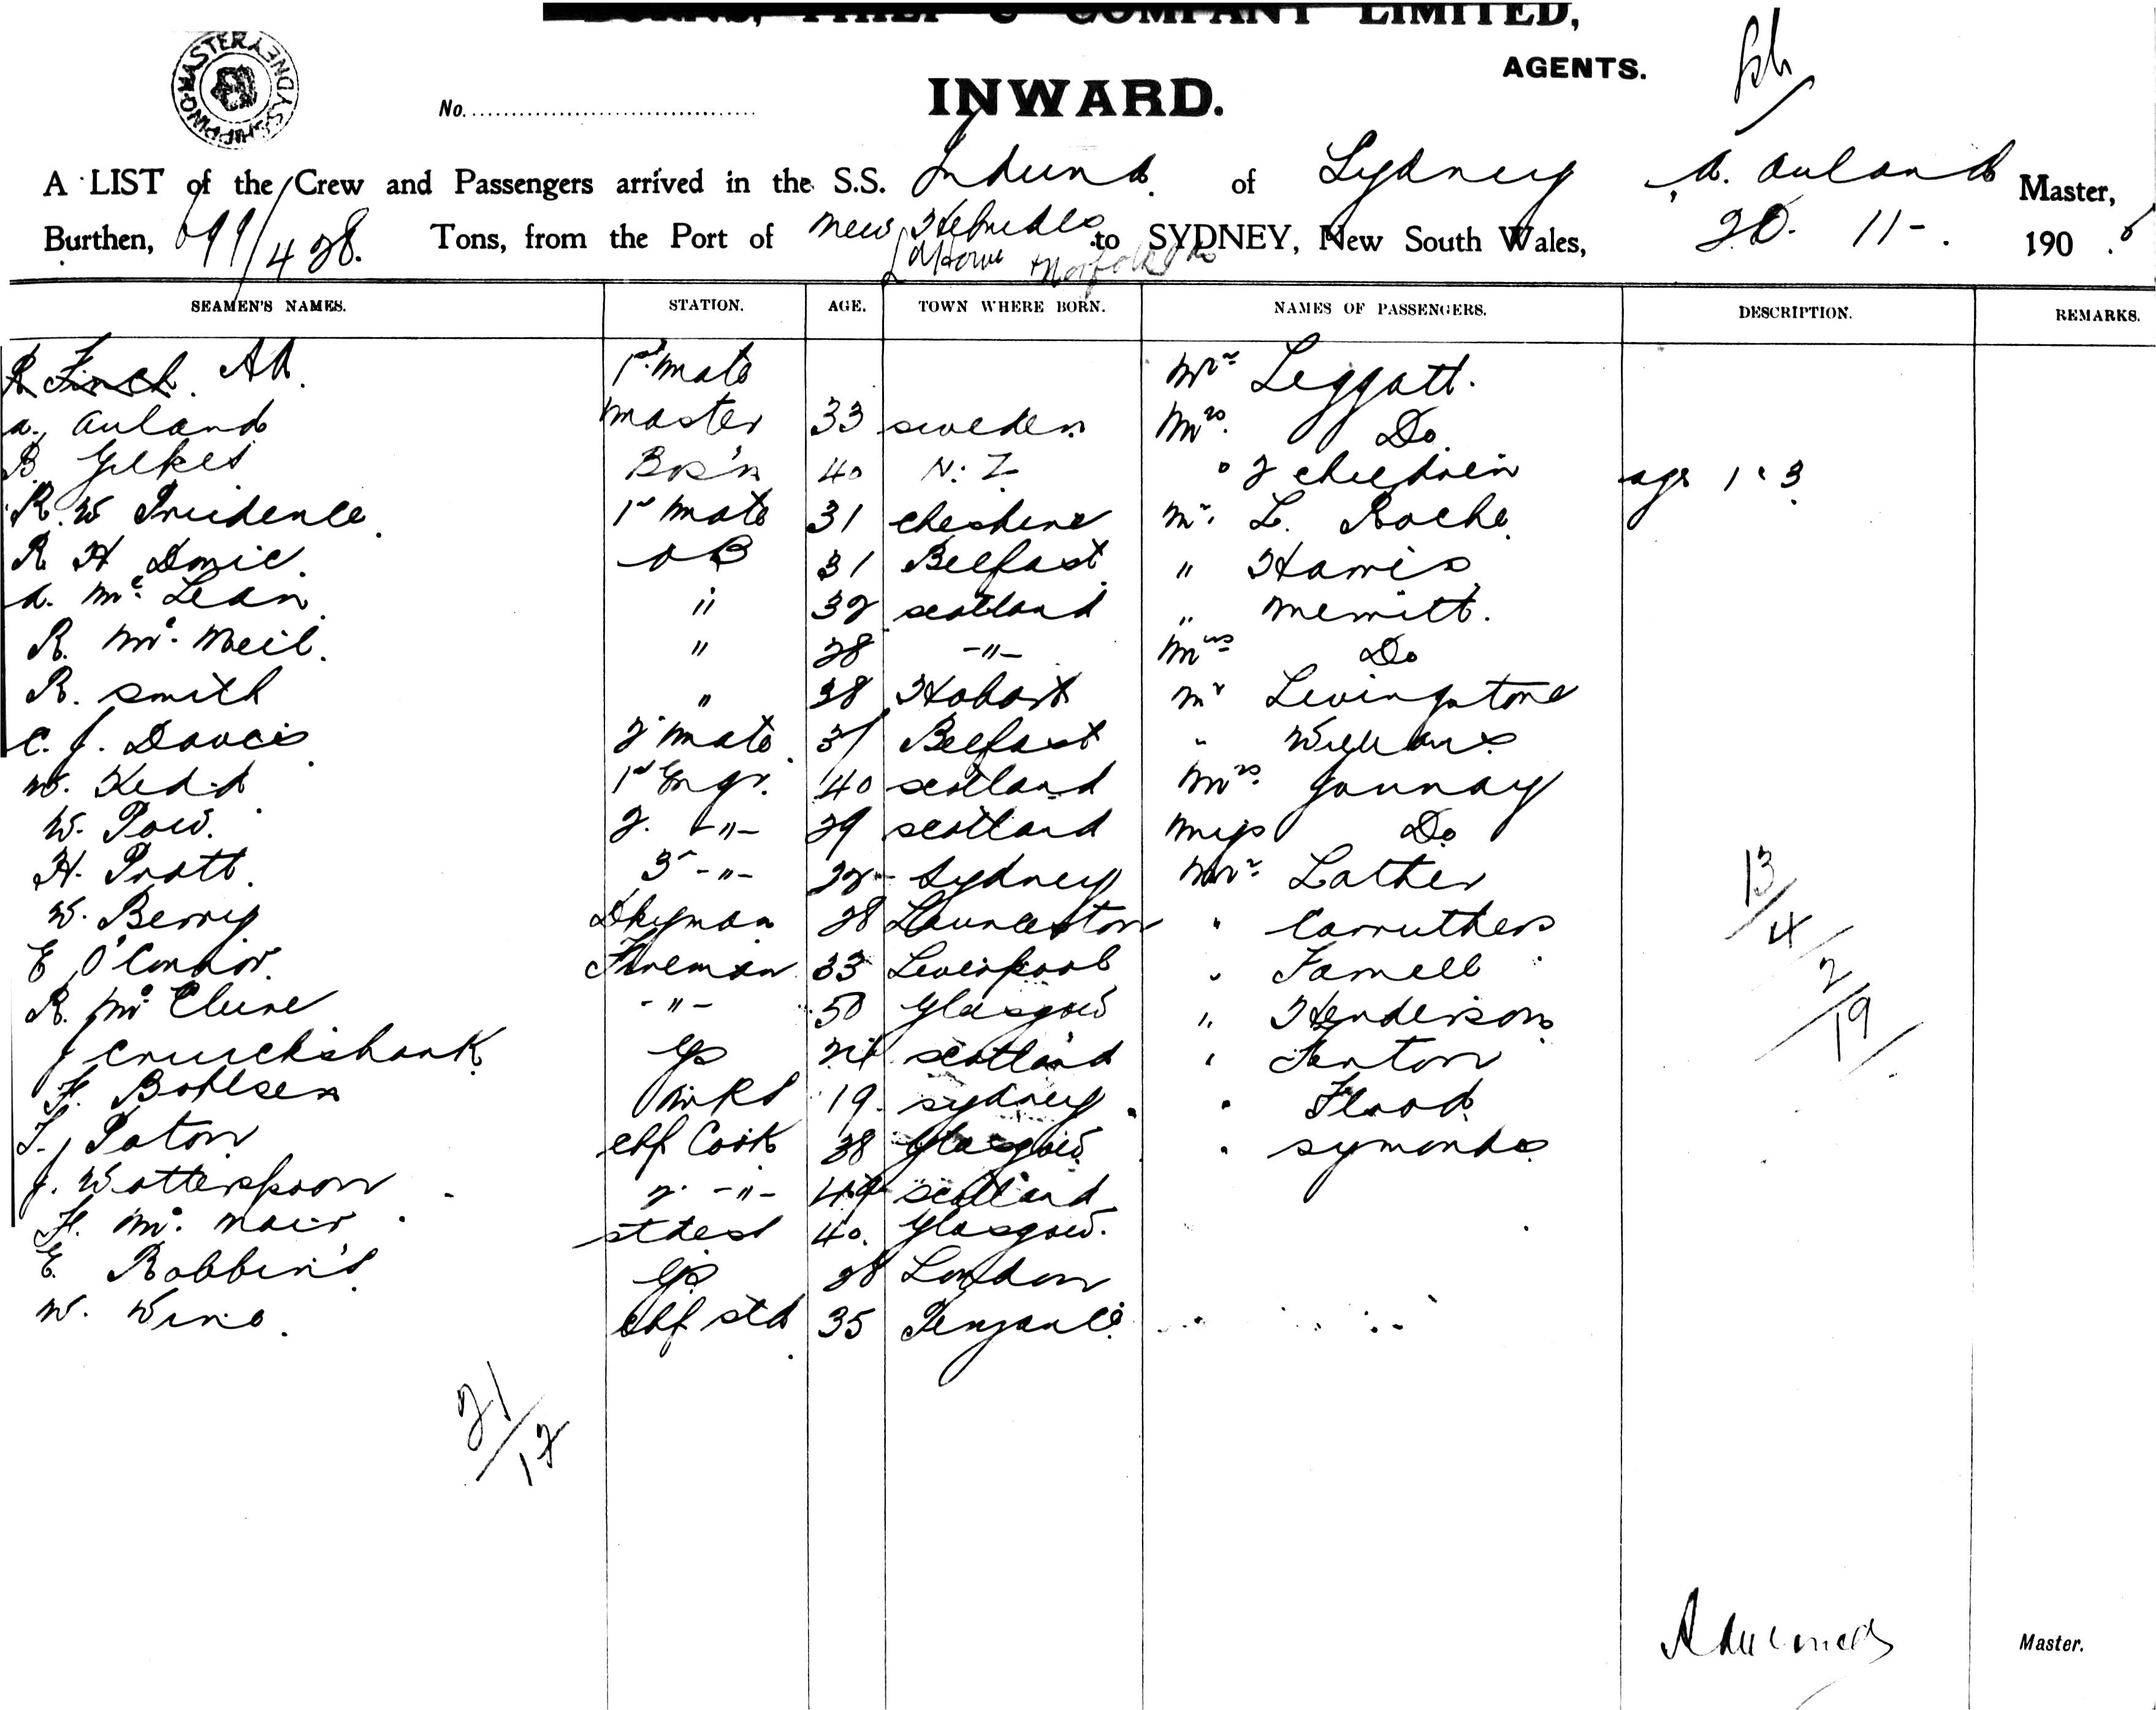 BURNS, PHILP & COMPANY LIMITED,
AGENTS.
SHIPPING MASTER SYDNEY
No.
INWARD.
A LIST of the Crew and Passengers arrived in the S.S. Induna of Sydney, A. Auland Master,
Burthen, 699/428. Tons, from the Port of New Hebrides to SYDNEY, New South Wales, 20. 11-. 190 6
Ld Howe & Norfolk Is
SEAMEN'S NAMES. STATION. AGE. TOWN WHERE BORN. NAMES OF PASSENGERS. DESCRIPTION. REMARKS.
R Finch 1st Mate Mr Leggatt.
A. Auland Master 33 Sweden Mrs. Do
B. Gilkes Bos'n 40 N. Z " 2 children age 1 & 3
R. W Prudence 1st Mate 31 Cheshire Mr. L. Roche
R H AB 31 Belfast " Harris
A. Mc Lean " 32 Scotland " Merritt.
R. Mc Neil. " 28 -"- Mrs Do
R. Smith " 38 Hobart Mr Livingstone
C. J. Davies 2 Mate 31 Belfast " Williams
W. Kedd 1st Engr. 40 Scotland Mrs.
W. Pow. 2. -"- 29 Scotland Miss Do
H. Pratt. 3 -"- 22 Sydney Mr. Lather
W. Berry Dkyman 28 Launceston " Carruthers
E O'Connor. Fireman 33 Liverpool " Farnell
R. Mc Clure -"- 50 Glasgow " Henderson
J Cruickshank Gs Scotland " Fenton
F. Bohlsen 19 Sydney " Flood
T. Paton Chf Cook 38 Glasgow " Symonds
J. Watterspoon 2 -"- Scotland
H. Mc. Nair Stdess 40. Glasgow.
E. Robbins Gs 28 London
W. Wino. Chf Std 35 Penzance
13/4
2/19
21/12
Master.